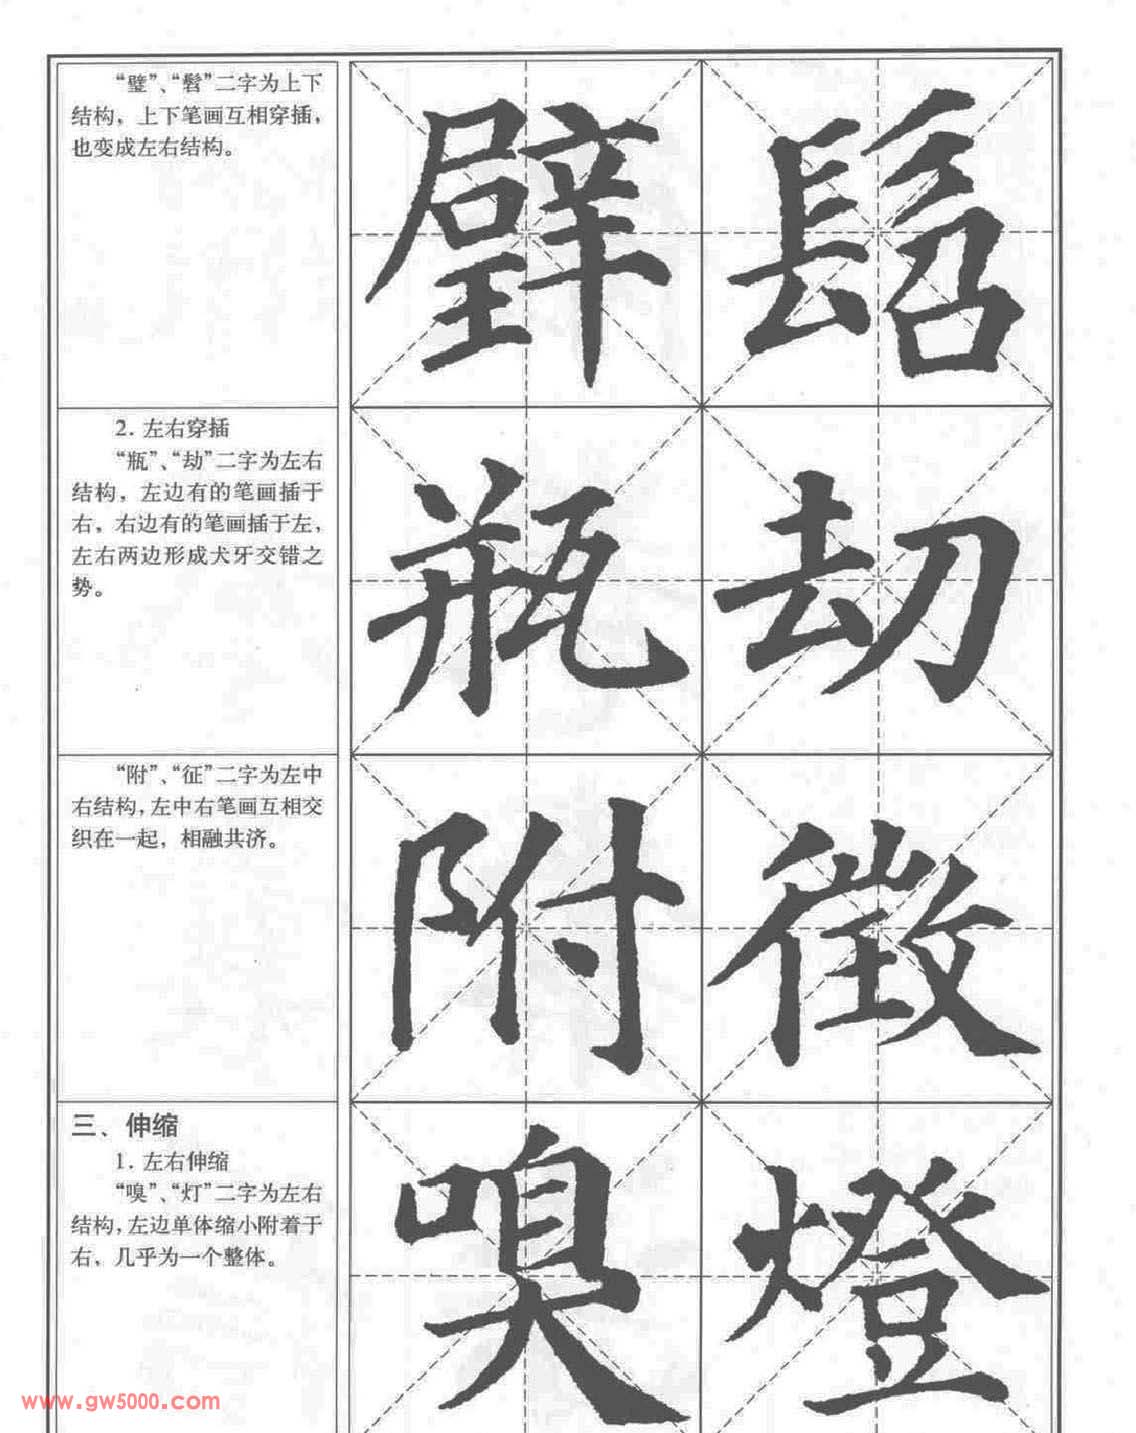 “璧”、“髫”二字为上下
结构，上下笔画互相穿插，
也变成左右结构。
璧 髫
2. 左右穿插
“瓶”、“劫”二字为左右
结构，左边有的笔画插于
右，右边有的笔画插于左，
左右两边形成犬牙交错之
势。
瓶 刧
“附”、“征”二字为左中
右结构，左中右笔画互相交
织在一起，相融共济。
附 徵
三、伸缩
1. 左右伸缩
“嗅”、“灯”二字为左右
结构，左边单体缩小附着于
右，几乎为一个整体。
嗅 燈
www.gw5000.com